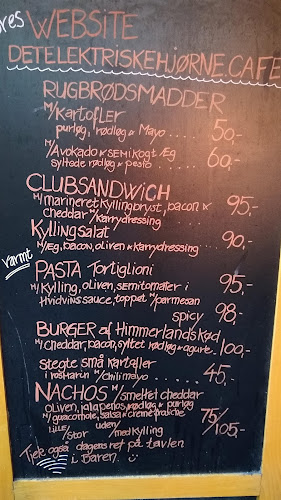 ores WEBSITE
DETELEKTRISKEHJØRNE.CAFE
RUGBRØDSMADDER
M/Kartofler
purløg, rødløg & Mayo..... 50,-
M/Avokado & SEMIKOGT Æg
syltede rødløg & pesto..... 60,-
CLUBSANDWICH
M/marineret Kyllingbryst, bacon &
cheddar M/Karrydressing 95,-
Kyllingsalat
M/Æg, bacon, oliven & Karrydressing 90,-
varmt
PASTA Tortiglioni
M/Kylling, oliven, semitomater i 95,-
Hvidvins sauce, toppet M/parmesan
spicy 98,-
BURGER af Himmerlandskød
M/cheddar, bacon, syltet rødløg & agurk.. 100,-
stegte små kartofler
i rosmarin M/chilimayo ..... 45,-
NACHOS M/smeltet cheddar
oliven, jalapenos, rødløg & purløg
M/guacomole, salsa & creme fraiche
LILLE/STOR uden/med kylling 75/105,-
Tjek også dagens ret på tavlen
i Baren.